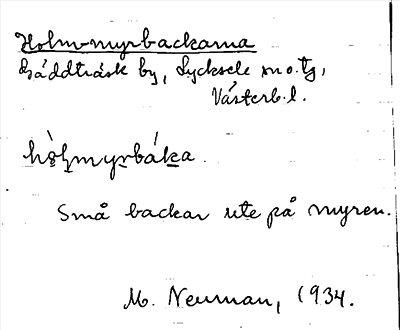 Holm-myrbackarna
Gäddträsk by, Lycksele sn o. tg,
Västerb. l.
hòlmyrbáka.
Små backar ute på myren.
M. Neuman, 1934.